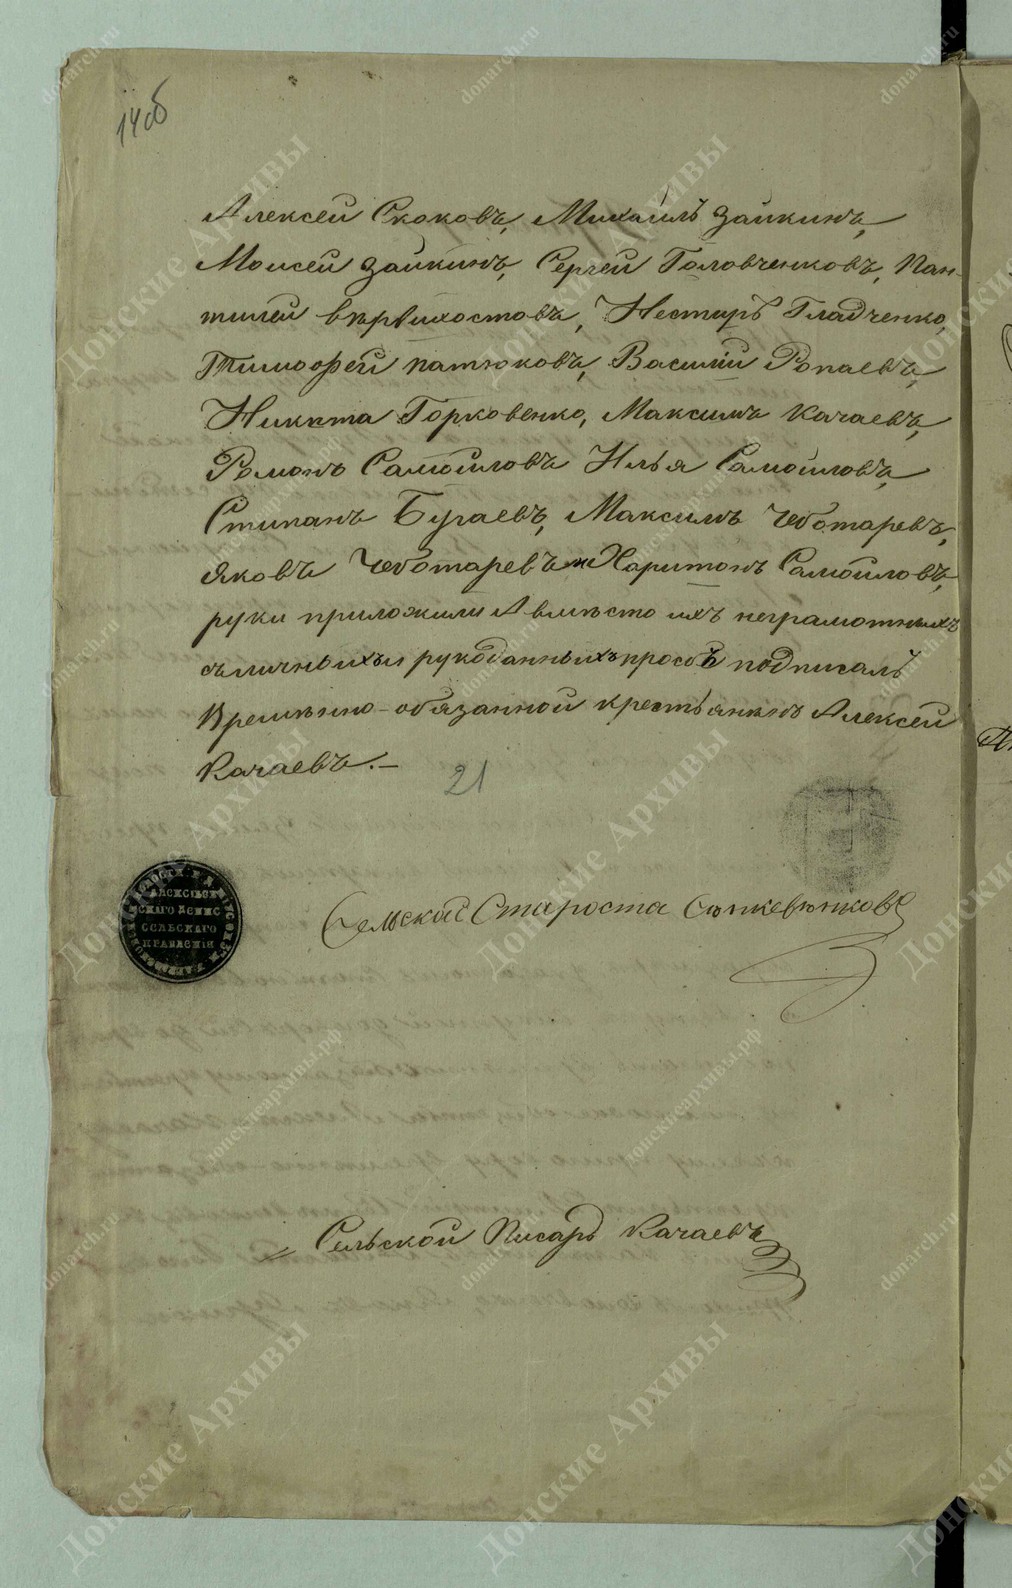 14об
Алексей Скоковъ, Михаилъ Заикинъ,
Моисей Заикинъ, Сергей Головченковъ, Пан-
тилей Вѣрвихостовъ, Нестиръ Гладченко,
Тимофей Патюковъ, Василий Ропаевъ,
Никита Горковенко, Максимъ Качаевъ,
Романъ Самойловъ Илья Самойловъ,
Стипанъ Бугаевъ, Максимъ Чеботаревъ,
Яковъ Чеботаревъ и Харитонъ Самойловъ,
руки приложили А вмѣсто ихъ неграмотныхъ
съ личныхъ и рукоданныхъ просьбъ подписалъ
Временно-обязанной крестьянинъ Алексей
Качаевъ.—
21
АЛЕКСѢЕВ
СКАГО
СЕЛЬСКАГО
ПРАВЛЕНІЯ
Сельской Староста
Сельской Писарь Качаевъ
Донские Архивы
donarch.ru
донскиеархивы.рф